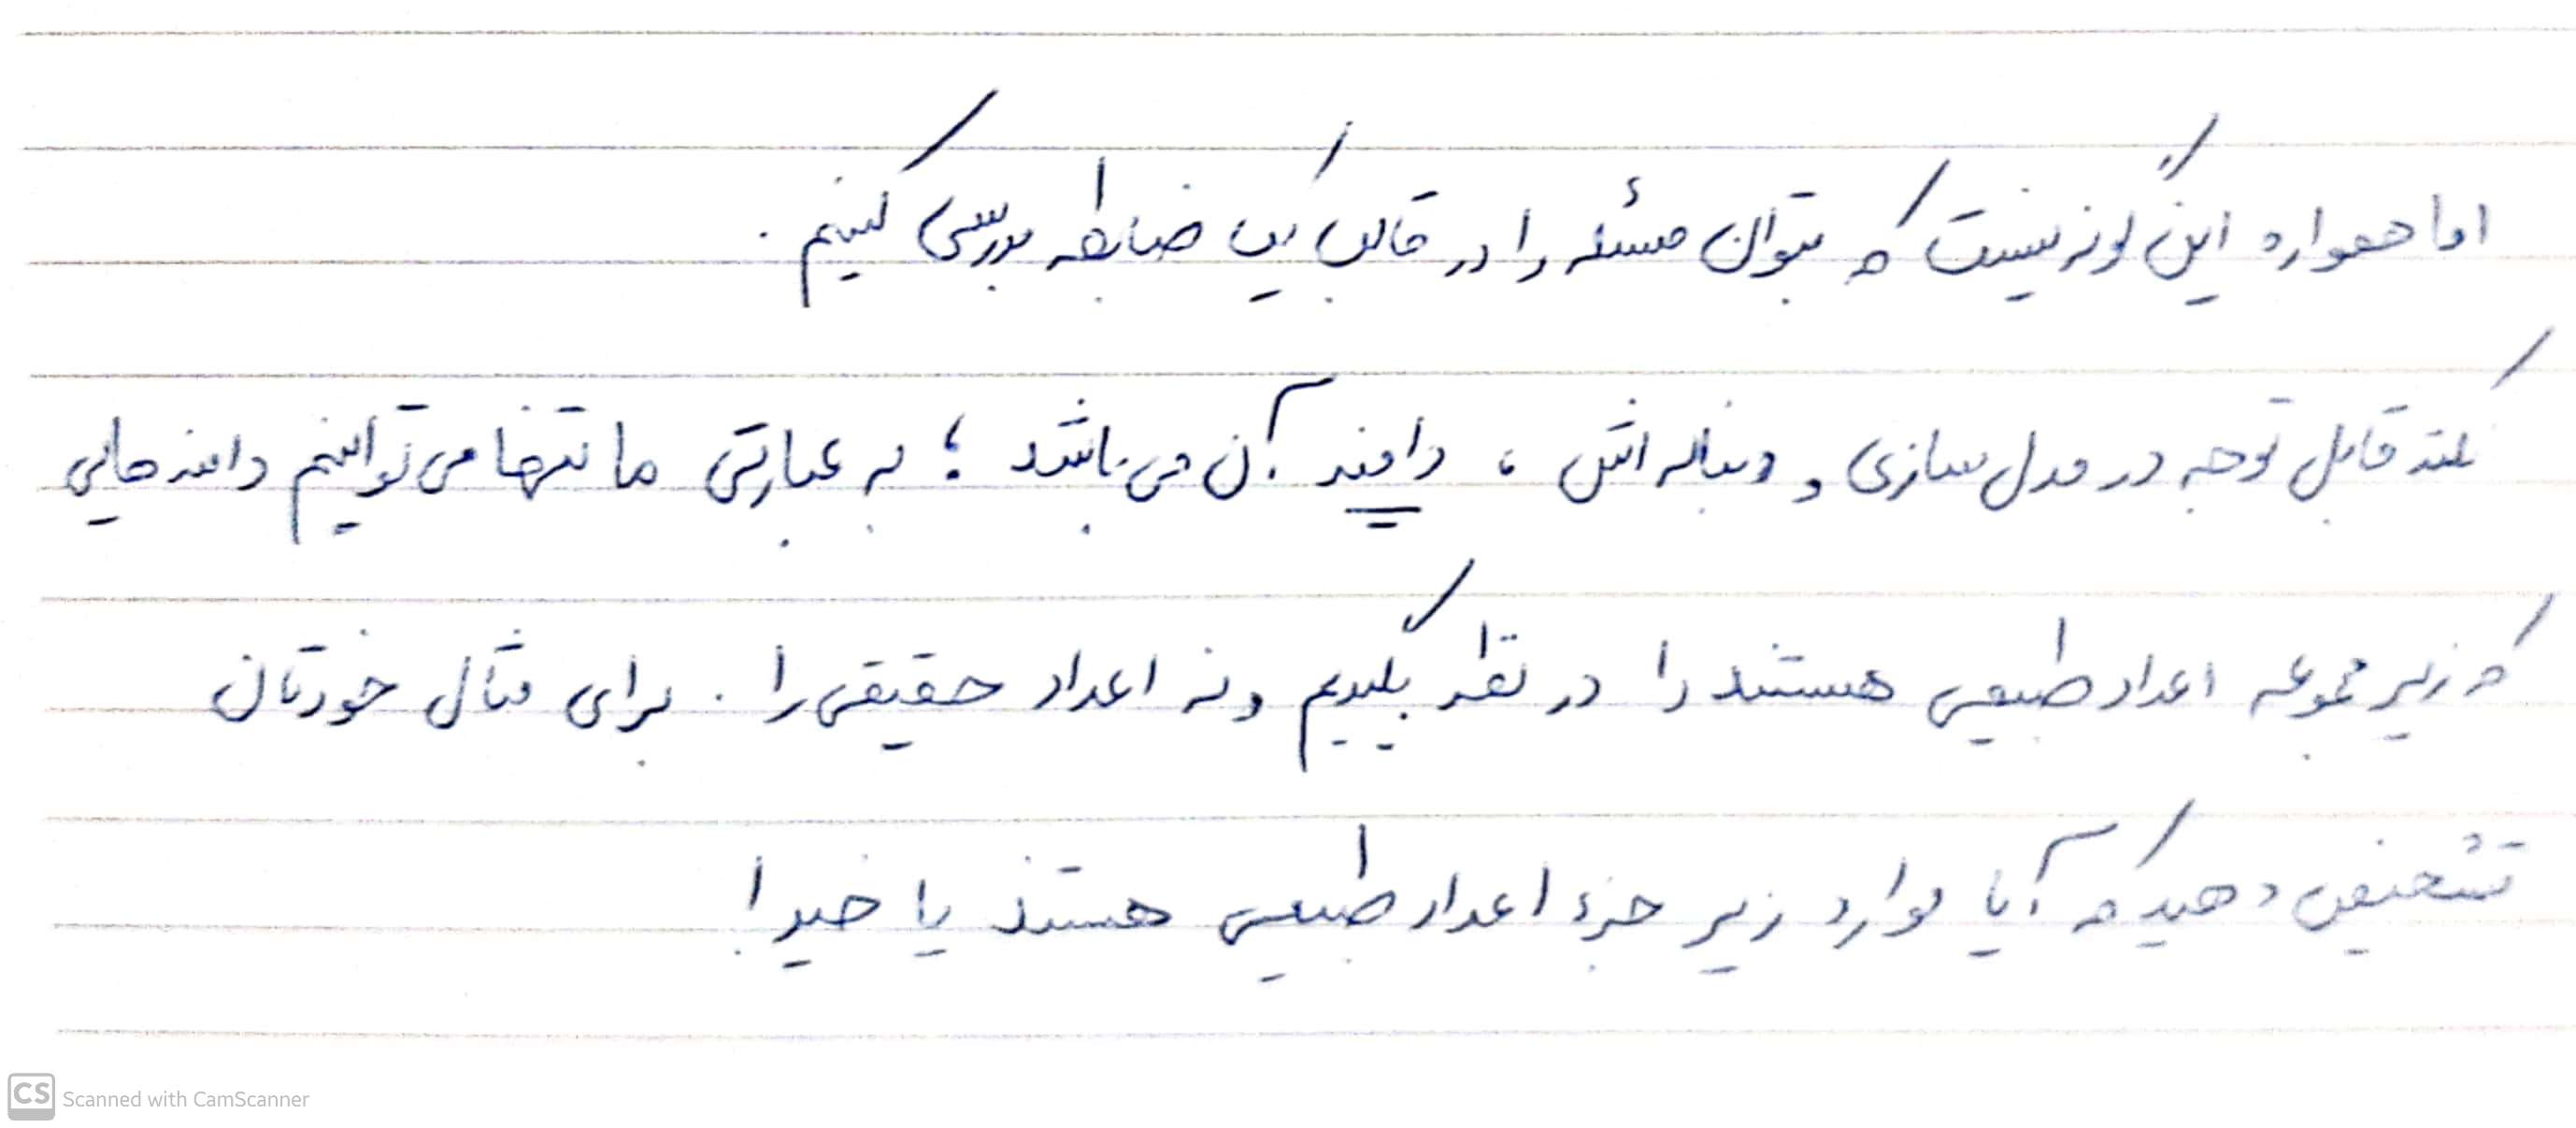 اما همواره این گونه نیست که بتوان مسئله را در قالب یک ضابطه بررسی کنیم .
نکته قابل توجه در مدل سازی و دنباله اش ، دامنه آن می باشد ؛ به عبارتی ما تنها می توانیم دامنه هایی
که زیر مجموعه اعداد طبیعی هستند را در نظر بگیریم و نه اعداد حقیقی را . برای مثال خودتان
تشخیص دهید که آیا موارد زیر جزء اعداد طبیعی هستند یا خیر!
CS Scanned with CamScanner